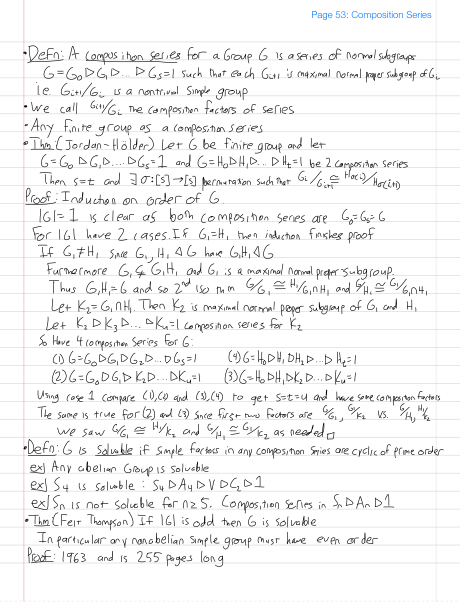 Page 53: Composition Series
• Defn: A composition series for a Group G is a series of normal subgroups
G = G₀ ▷ G₁ ▷ ... ▷ Gₛ = 1 such that each Gᵢ₊₁ is maximal normal proper subgroup of Gᵢ
i.e. Gᵢ₊₁/Gᵢ is a nontrivial simple group
• We call Gᵢ₊₁/Gᵢ the composition factors of series
- Any finite group as a composition series
• Thm (Jordan-Hölder) Let G be finite group and let
G = G₀ ▷ G₁ ▷ ... ▷ Gₛ = 1 and G = H₀ ▷ H₁ ▷ ... ▷ Hₜ = 1 be 2 composition series
Then s=t and ∃ σ:[s]→[s] permutation such that Gᵢ/Gᵢ₊₁ ≅ H_σ(i)/H_σ(i+1)
Proof: Induction on order of G.
|G| = 1 is clear as both composition series are G₀ = Gₛ = G
For |G| have 2 cases. If G₁ = H₁ then induction finishes proof
If G₁ ≠ H₁ since G₁, H₁ ◁ G have G₁H₁ ◁ G
Furthermore G₁ ⊊ G₁H₁ and G₁ is a maximal normal proper subgroup.
Thus G₁H₁ = G and so 2nd iso thm G/G₁ ≅ H₁/G₁∩H₁ and G/H₁ ≅ G₁/G₁∩H₁
Let K₂ = G₁∩H₁. Then K₂ is maximal normal proper subgroup of G₁ and H₁
Let K₂ ▷ K₃ ▷ ... ▷ Kᵤ = 1 composition series for K₂
So Have 4 composition Series for G:
(1) G = G₀ ▷ G₁ ▷ G₂ ▷ ... ▷ Gₛ = 1 (4) G = H₀ ▷ H₁ ▷ H₂ ▷ ... ▷ Hₜ = 1
(2) G = G₀ ▷ G₁ ▷ K₂ ... ▷ Kᵤ = 1 (3) G = H₀ ▷ H₁ ▷ K₂ ▷ ... ▷ Kᵤ = 1
Using case 1 compare (1),(2) and (3),(4) to get s=t=u and have same composition factors
The same is true for (2) and (3) since first two factors are G/G₁, G₁/K₂ vs. G/H₁, H₁/K₂
we saw G/G₁ ≅ H₁/K₂ and G/H₁ ≅ G₁/K₂ as needed □
• Defn: G is Soluable if simple factors in any composition series are cyclic of prime order
ex/ Any abelian Group is soluable
ex/ S₄ is soluable: S₄ ▷ A₄ ▷ V ▷ C₂ ▷ 1
ex/ Sₙ is not soluable for n≥5. Composition series in Sₙ ▷ Aₙ ▷ 1
• Thm (Feit Thompson) If |G| is odd then G is soluable
In particular any nonabelian simple group must have even order
Proof: 1963 and is 255 pages long